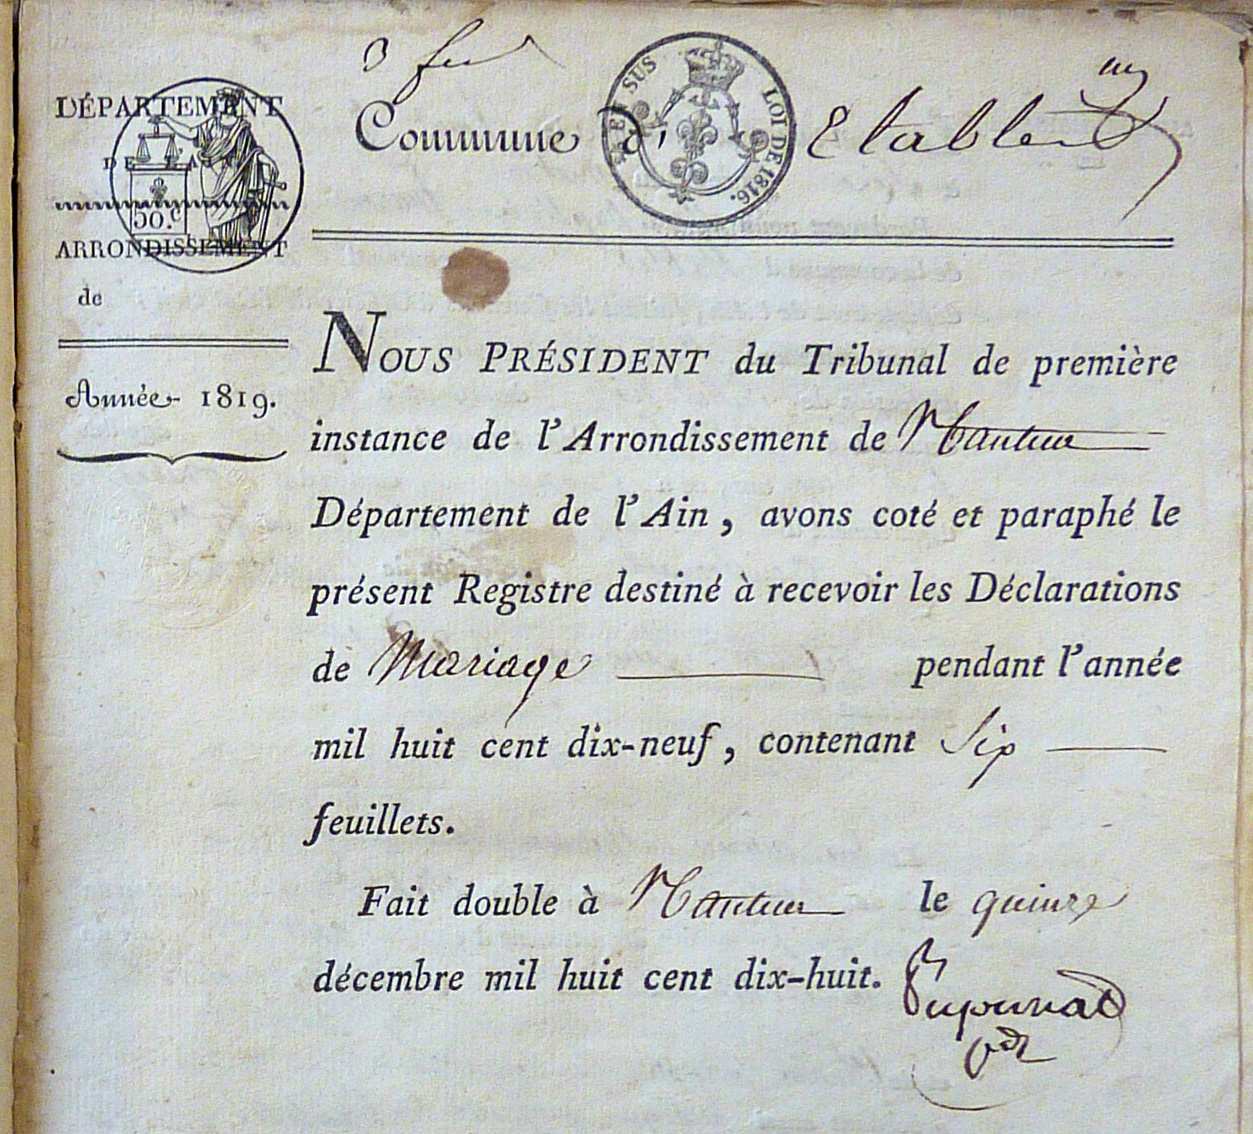 3 feu
DÉPARTEMENT
DE L'AIN
50.c
ARRONDISSEMENT
de
Année 1819.
Commune d' Etables
EN SUS LOI DE 1816.
NOUS PRÉSIDENT du Tribunal de première
instance de l'Arrondissement de Nantua
Département de l'Ain, avons coté et paraphé le
présent Registre destiné à recevoir les Déclarations
de Mariage pendant l'année
mil huit cent dix-neuf, contenant Six
feuillets.
Fait double à Nantua le quinze
décembre mil huit cent dix-huit.